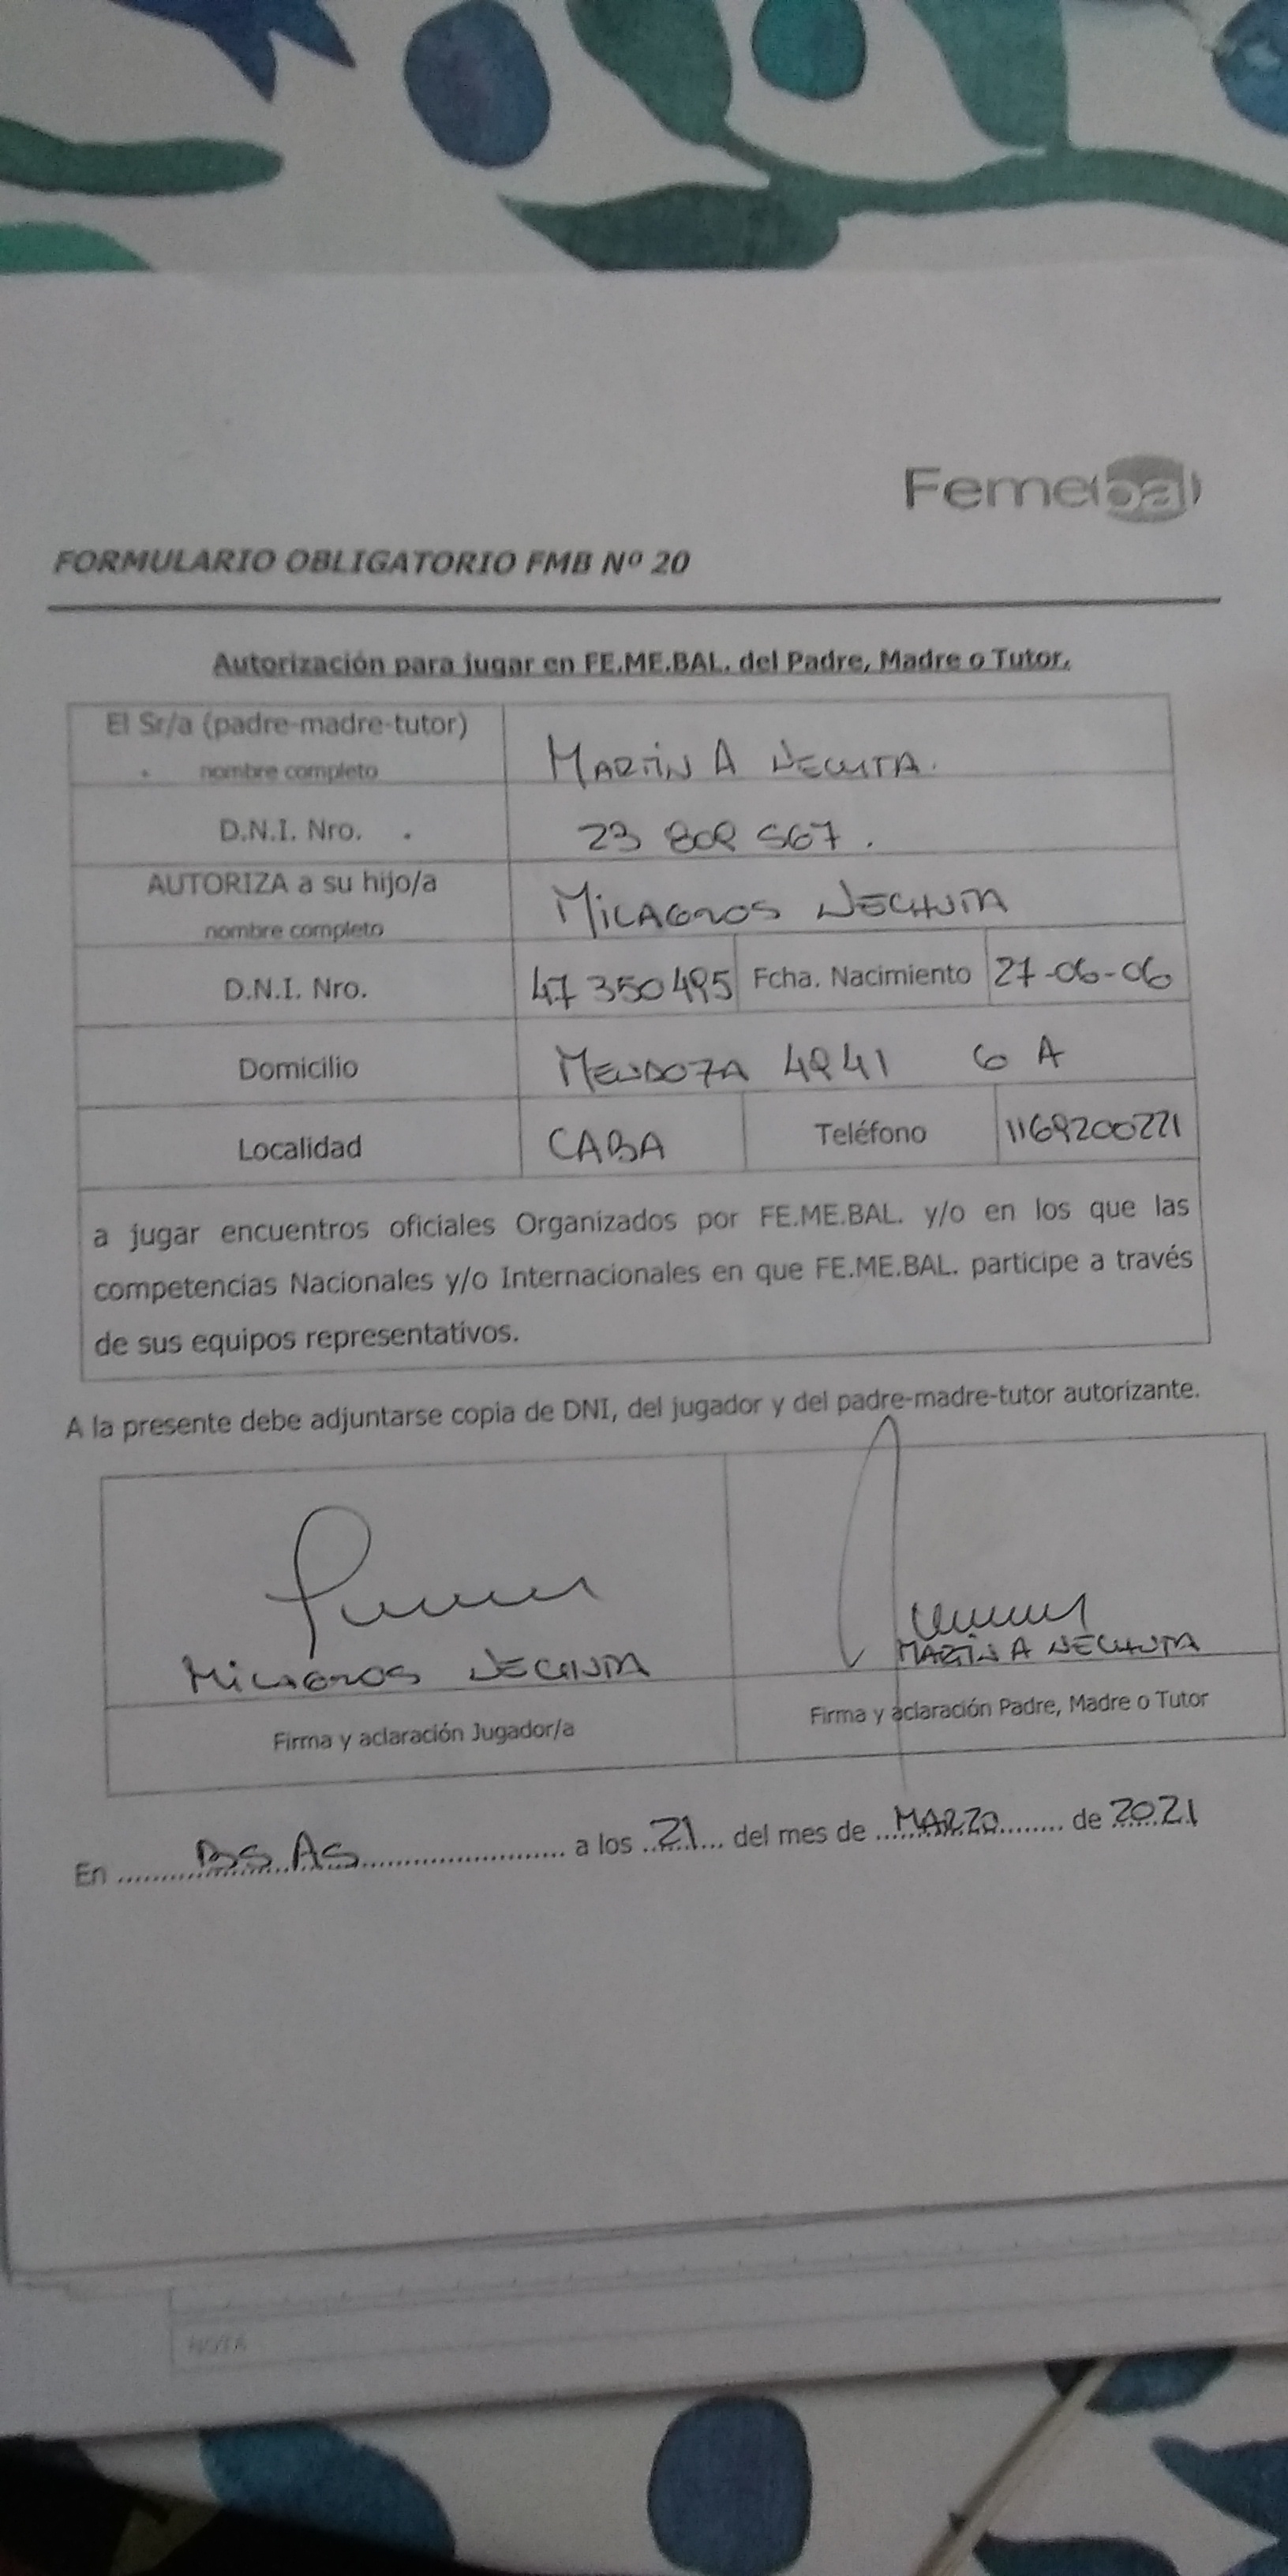 Femebal
FORMULARIO OBLIGATORIO FMB Nº 20
Autorización para jugar en FE.ME.BAL. del Padre, Madre o Tutor.
El Sr/a (padre-madre-tutor)
nombre completo
MARTIN A NECHUTA.
D.N.I. Nro. 23 808 567.
AUTORIZA a su hijo/a
nombre completo
MILAGROS NECHUTA
D.N.I. Nro. 47 350 495 Fcha. Nacimiento 27-06-06
Domicilio MENDOZA 4841 6 A
Localidad CABA Teléfono 1169200221
a jugar encuentros oficiales Organizados por FE.ME.BAL. y/o en los que las
competencias Nacionales y/o Internacionales en que FE.ME.BAL. participe a través
de sus equipos representativos.
A la presente debe adjuntarse copia de DNI, del jugador y del padre-madre-tutor autorizante.
MILAGROS NECHUTA
MARTIN A NECHUTA
Firma y aclaración Jugador/a
Firma y aclaración Padre, Madre o Tutor
En BS AS a los 21 del mes de MARZO de 2021
NOTA